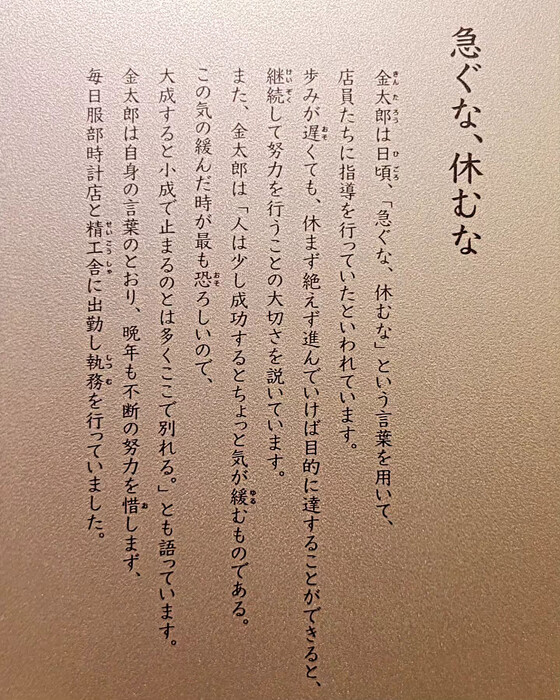 急ぐな、休むな
金太郎は日頃、「急ぐな、休むな」という言葉を用いて、
店員たちに指導を行っていたといわれています。
歩みが遅くても、休まず絶えず進んでいけば目的に達することができると、
継続して努力を行うことの大切さを説いています。
また、金太郎は「人は少し成功するとちょっと気が緩むものである。
この気の緩んだ時が最も恐ろしいので、
大成すると小成で止まるのとは多くここで別れる。」とも語っています。
金太郎は自身の言葉のとおり、晩年も不断の努力を惜しまず、
毎日服部時計店と精工舎に出勤し執務を行っていました。